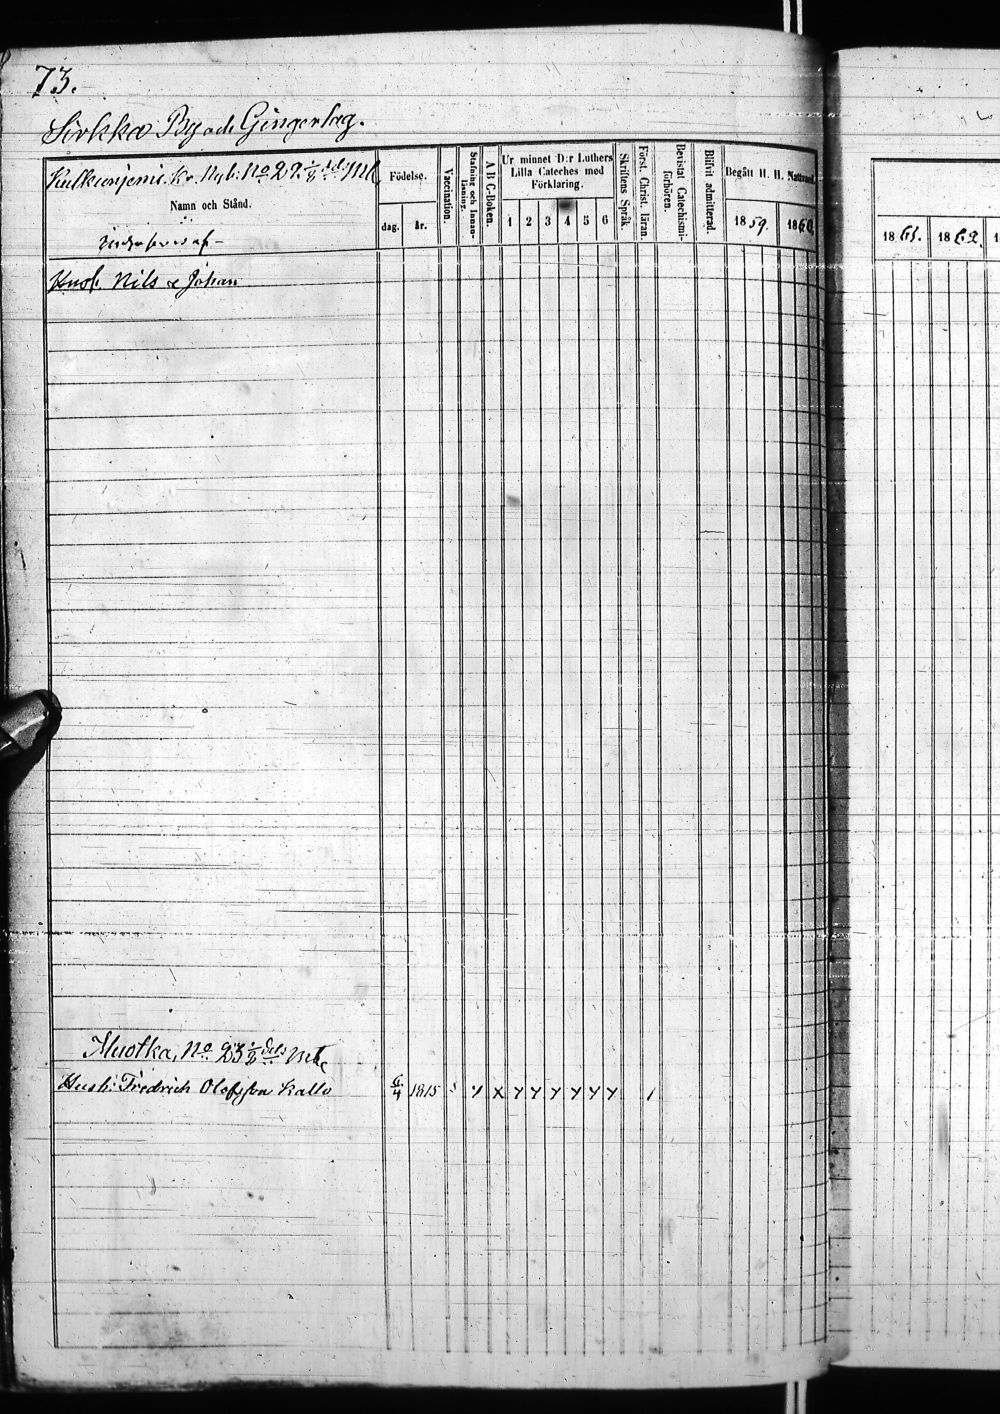 73.
Sirkka By och Gingerlag.
Kulkuniemi. Kr. Nyb: No 22 1/8 dels Mtl
Namn och Stånd.
Födelse.
dag. år.
Vaccination.
Stafning och Innanläsning.
A B C-Boken.
Ur minnet D:r Luthers
Lilla Cateches med
Förklaring.
1 2 3 4 5 6
Skriftens Språk.
Först. Christ. läran.
Bevistat Catechismiförhören.
Blifvit admitterad.
Begått H. H. Nattvard.
1859. 1860.
1861. 1862.
Husb. Nils & Johan
Muotka, No 23 1/8 dels Mtl
Husb: Fredrich Olofsson Kallo 6/4 1815